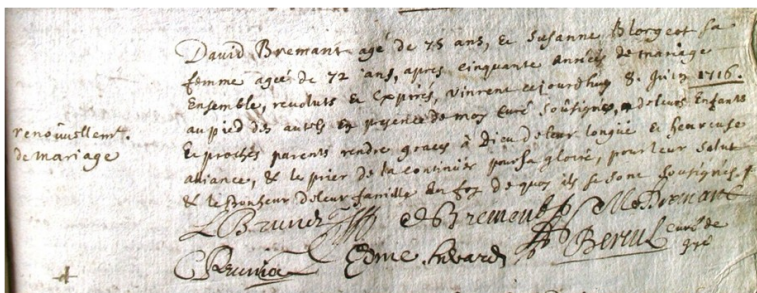 David Bremant agé de 75 ans, & Susanne Blorgeot sa
femme ageé de 72 ans, apres cinquante années de mariage
Ensemble, revoluts & Expirés, vinrent cejourdhuy 8. Juin 1716.
au pied des autels En presence de moy Curé Soûsigné, & deleurs Enfants
& proches parents rendre graces à Dieu deleur longüe & heureuse
alliance, & le prier de la continuër pour sa gloire, pour leur salut
& le Bonheur deleur famille En foy de quoy ils se sont sousignés.
renoüvellemt.
de mariage
Edme
curé de